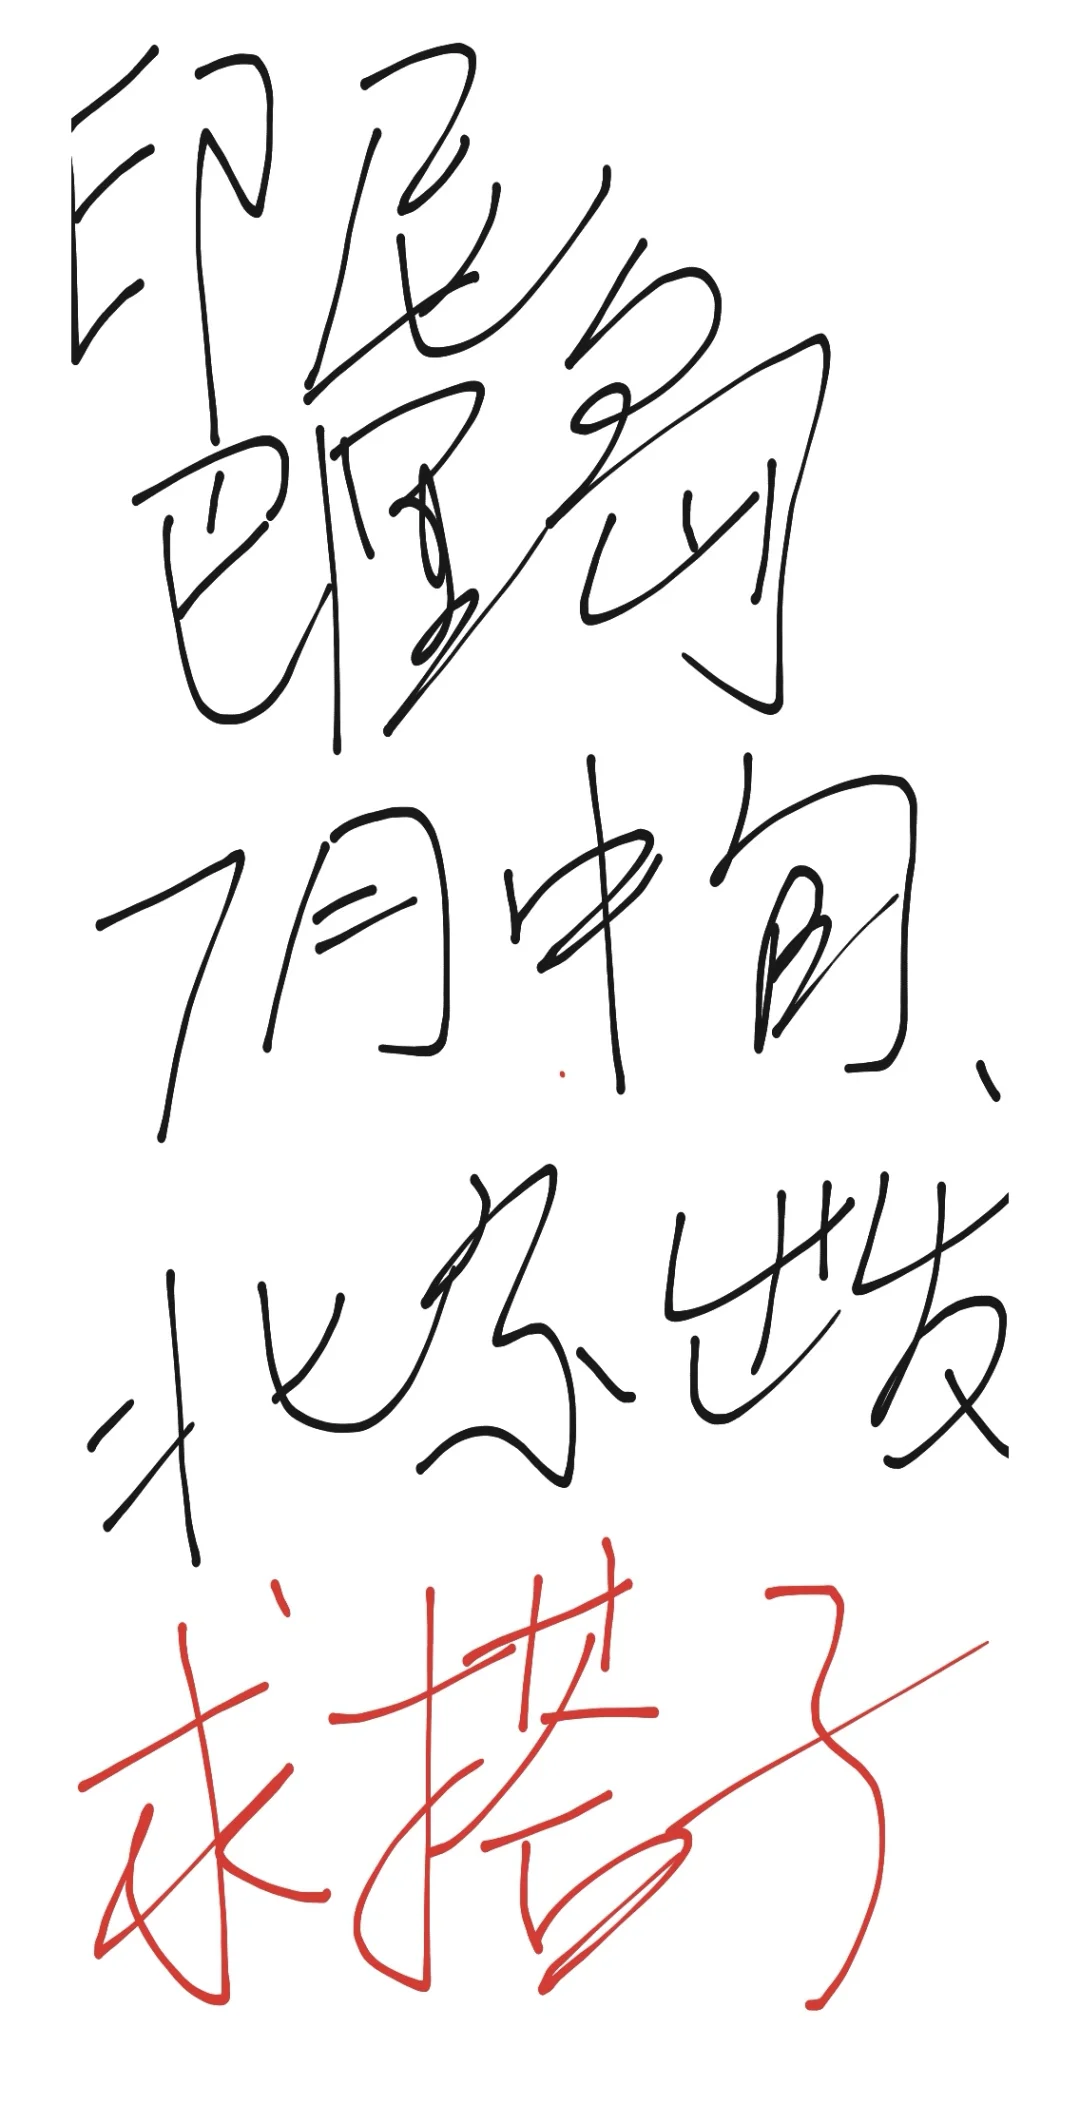 印尼
巴厘岛
7月中旬、
北京出发
求搭子